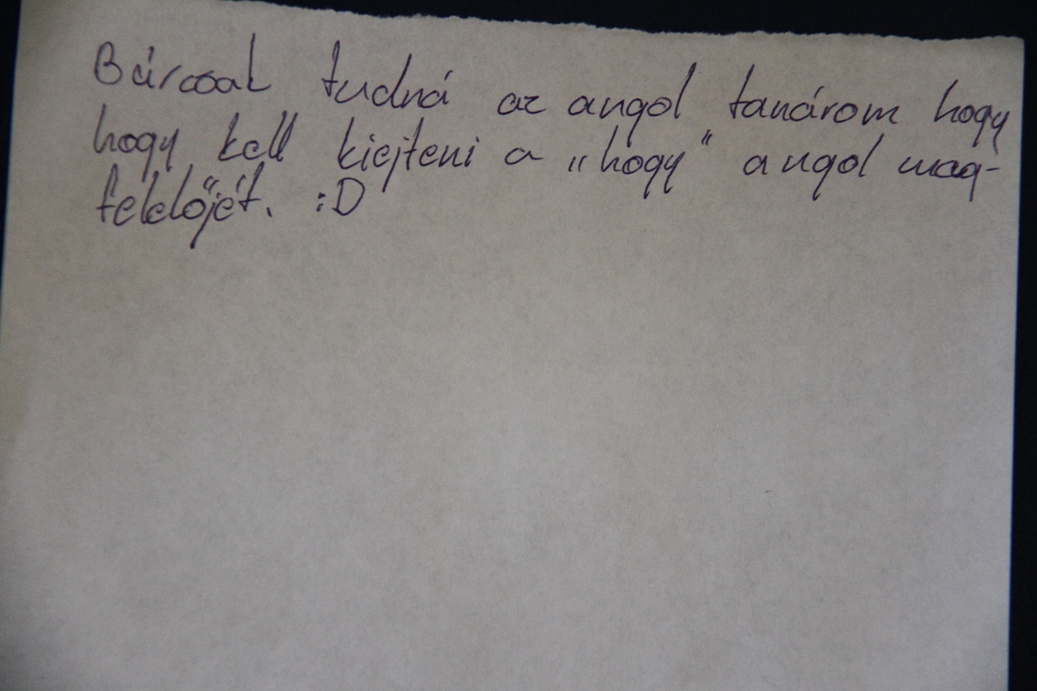 Bárcsak tudná az angol tanárom hogy
hogy kell kiejteni a „hogy" angol meg-
felelőjét. :D